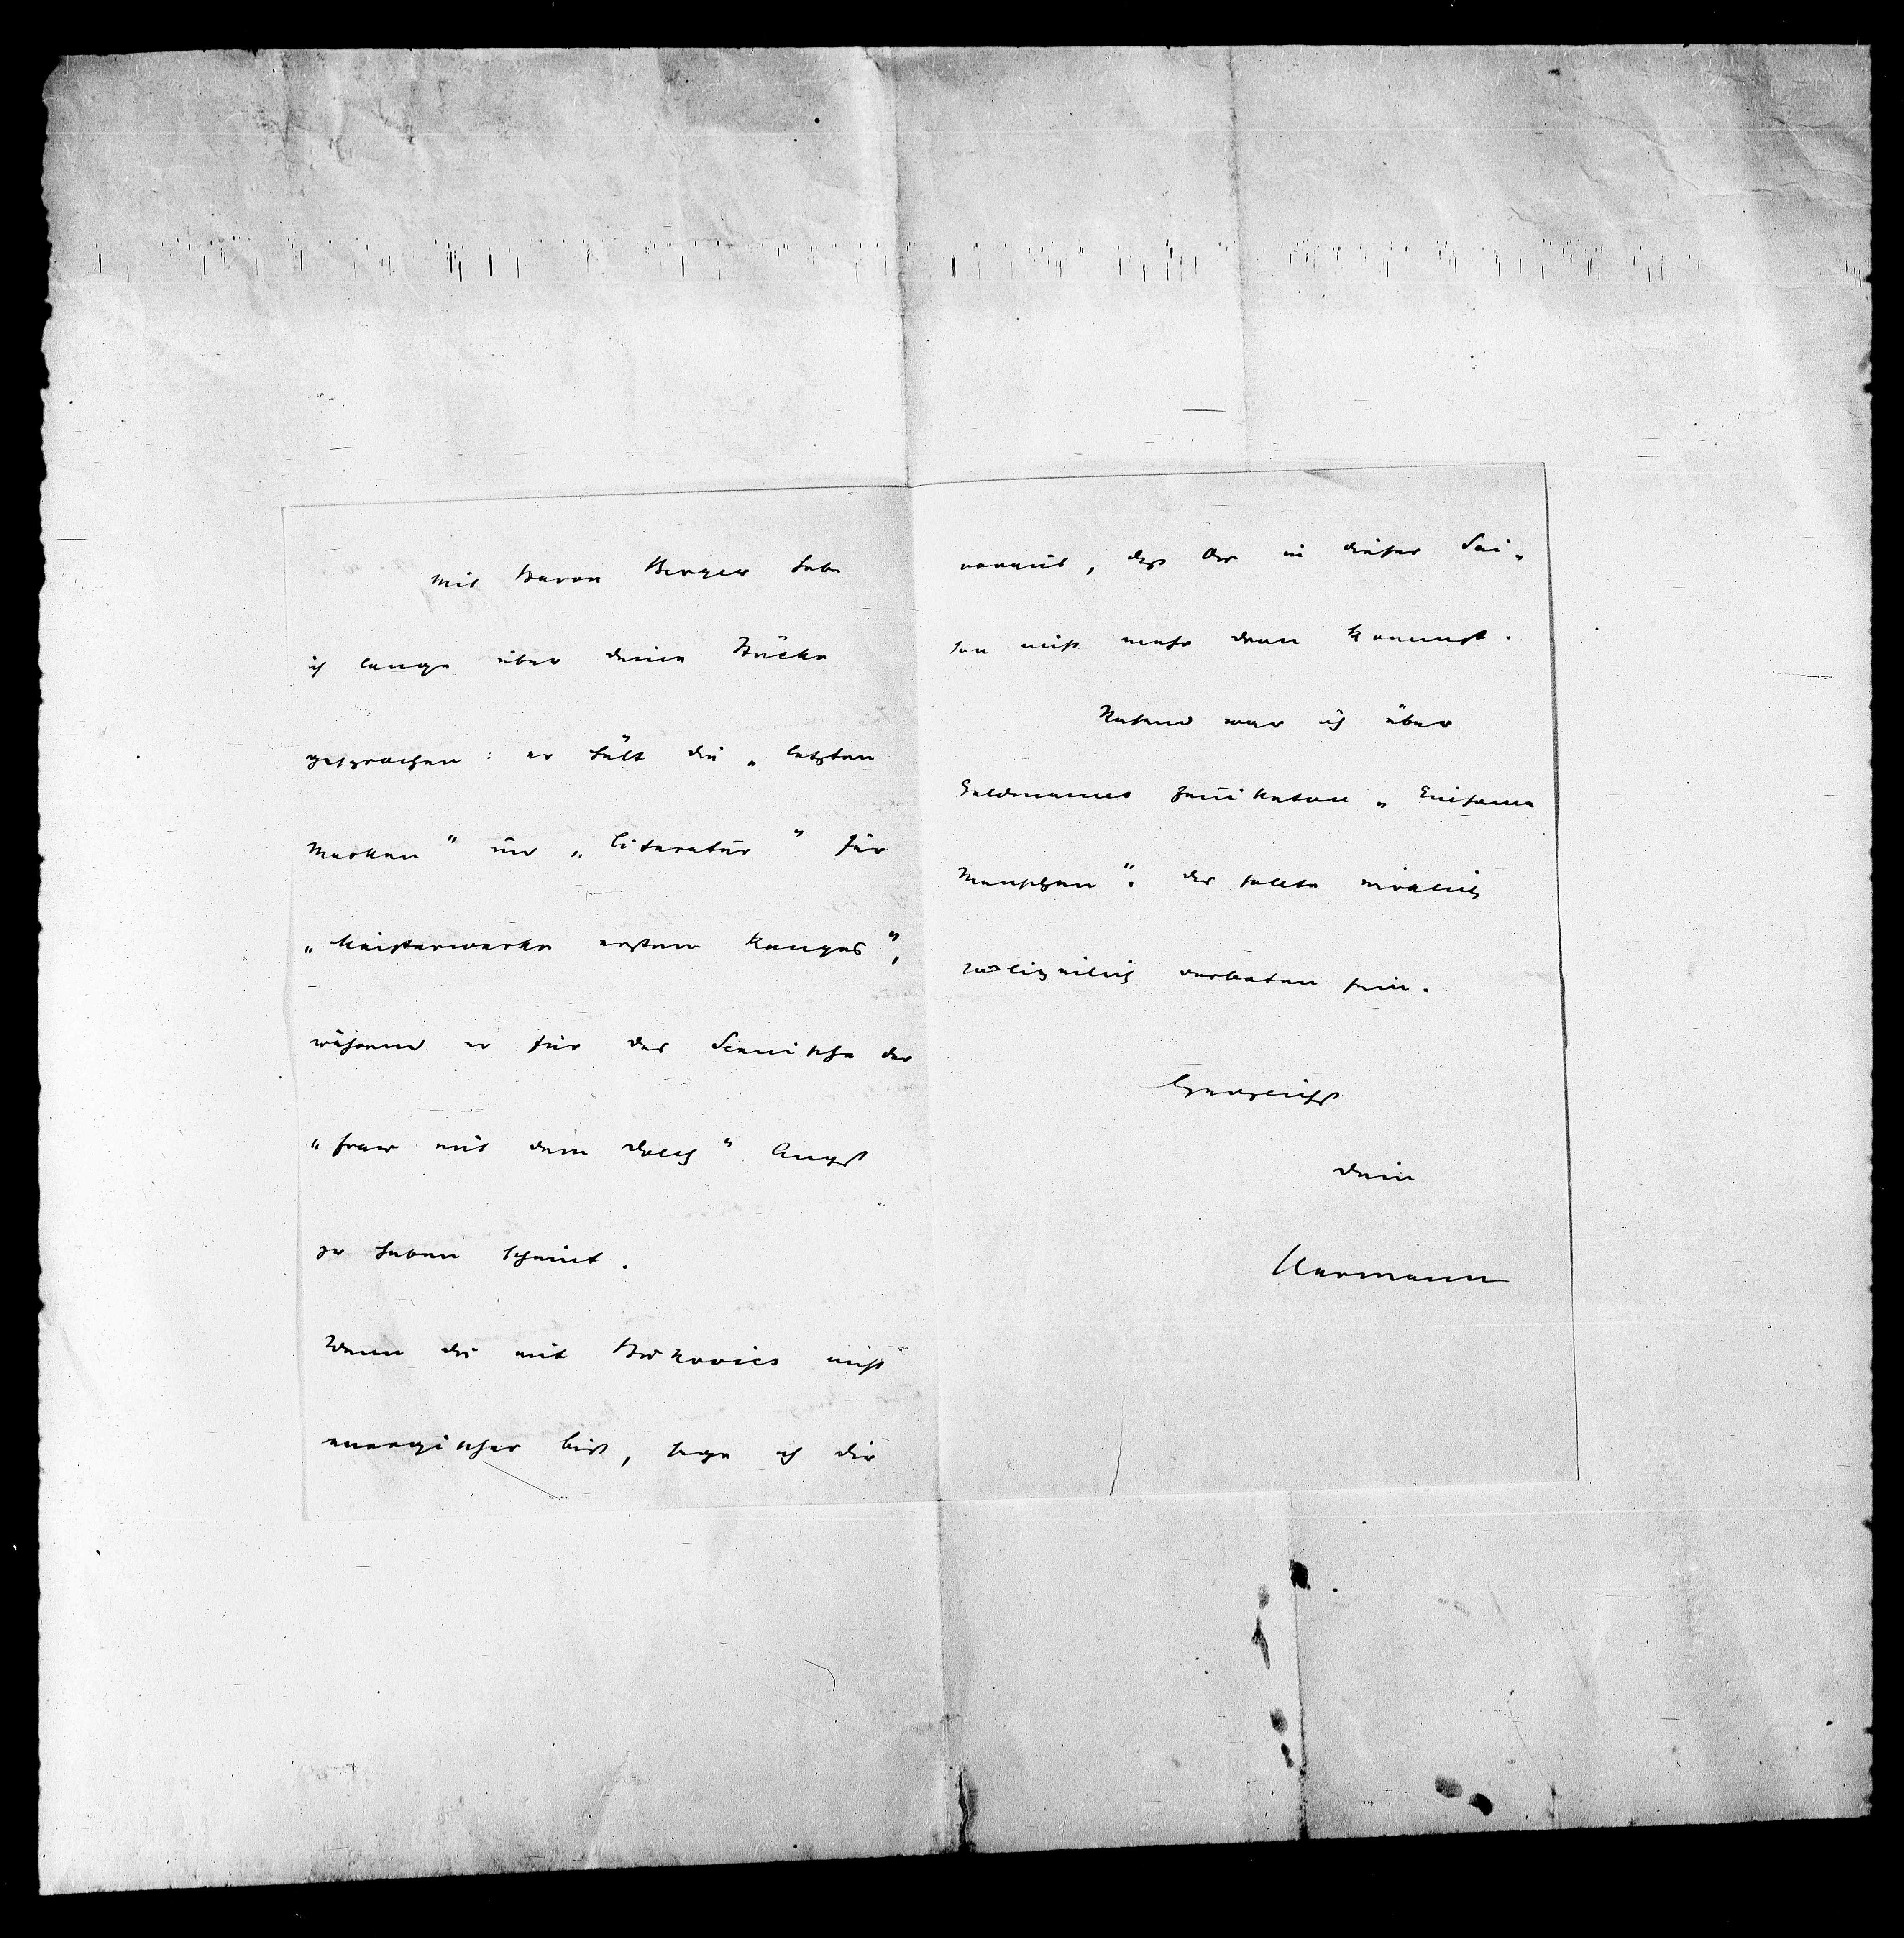 Mit Baron Berger habe
ich lange über Deine Stücke
gesprochen: er hält die „letzten
Masken“ und „Literatur“ für
„Meisterwerke ersten Ranges“,
während er für das Scenische der
„Frau mit dem Dolch“ Angst
zu haben scheint.
Wenn Du mit Bukovics nicht
energischer bist, sage ich Dir
voraus, daß Du in dieser Sai-
son nicht mehr dran kommst.
Wütend war ich über
Goldmanns Feuilleton „Einsame
Menschen“. Der sollte wirklich
polizeilich verboten sein.
Herzlichst
Dein
Hermann